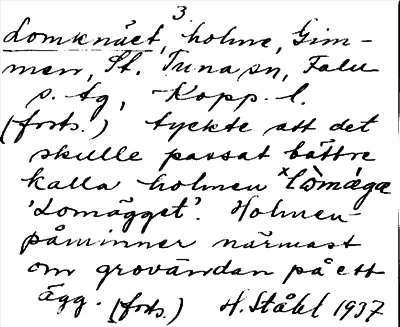 3
Lomknäet, holme, Gim-
men, St. Tuna sn, Falu
s. tg, Kopp. l.
(forts.) tyckte att det
skulle passat bättre
kalla holmen
'Lomägget'. Holmen
påminner närmast
om grovändan på ett
ägg. (forts.) H. Ståhl 1937